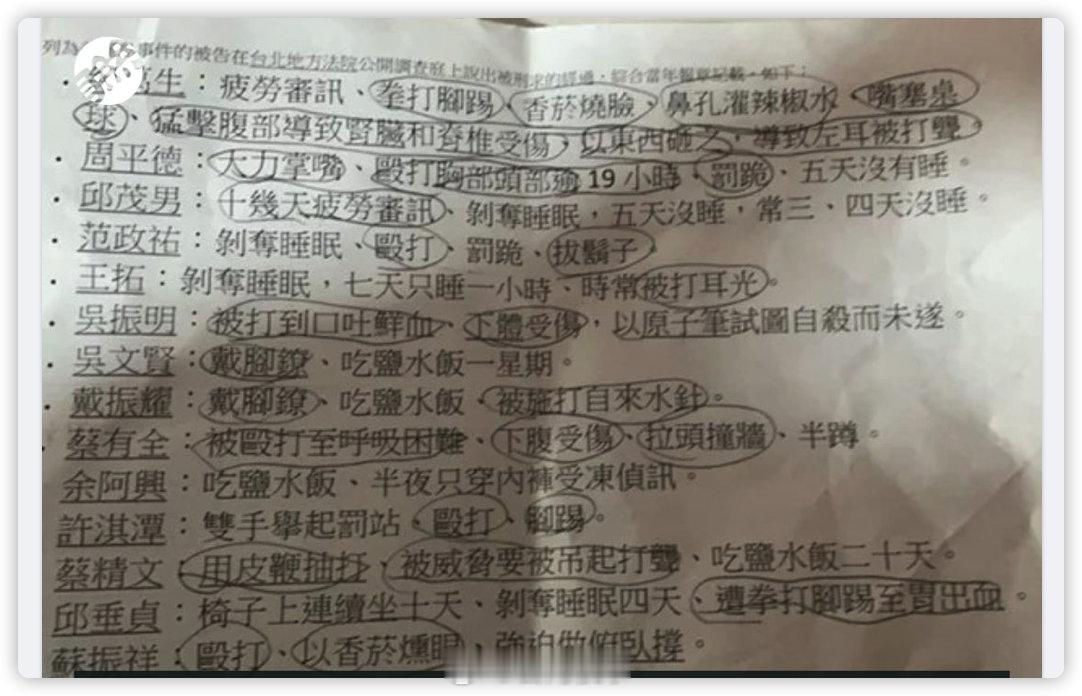 列為 事件的被告在台北地方法院公開調查庭上說出被刑求的經過，綜合當年報章記載，如下：
· 萬生：疲勞審訊、拳打腳踢、香菸燒臉、鼻孔灌辣椒水、嘴塞桌
球、猛擊腹部導致腎臟和脊椎受傷，以東西砸之，導致左耳被打聾。
· 周平德：大力掌嘴、毆打胸部頭部逾 19 小時、罰跪、五天沒有睡。
· 邱茂男：十幾天疲勞審訊、剝奪睡眠，五天沒睡，常三、四天沒睡。
· 范政祐：剝奪睡眠、毆打、罰跪、拔鬍子。
· 王拓：剝奪睡眠，七天只睡一小時、時常被打耳光。
· 吳振明：被打到口吐鮮血、下體受傷，以原子筆試圖自殺而未遂。
· 吳文賢：戴腳鐐、吃鹽水飯一星期。
· 戴振耀：戴腳鐐、吃鹽水飯、被施打自來水針。
· 蔡有全：被毆打至呼吸困難、下腹受傷、拉頭撞牆、半蹲。
余阿興：吃鹽水飯、半夜只穿內褲受凍偵訊。
許淇潭：雙手舉起罰站、毆打、腳踢。
蔡精文：用皮鞭抽打、被威脅要被吊起打聾、吃鹽水飯二十天。
邱垂貞：椅子上連續坐十天、剝奪睡眠四天、遭拳打腳踢至胃出血。
蘇振祥：毆打、以香菸燻眼、強迫做俯臥撐。